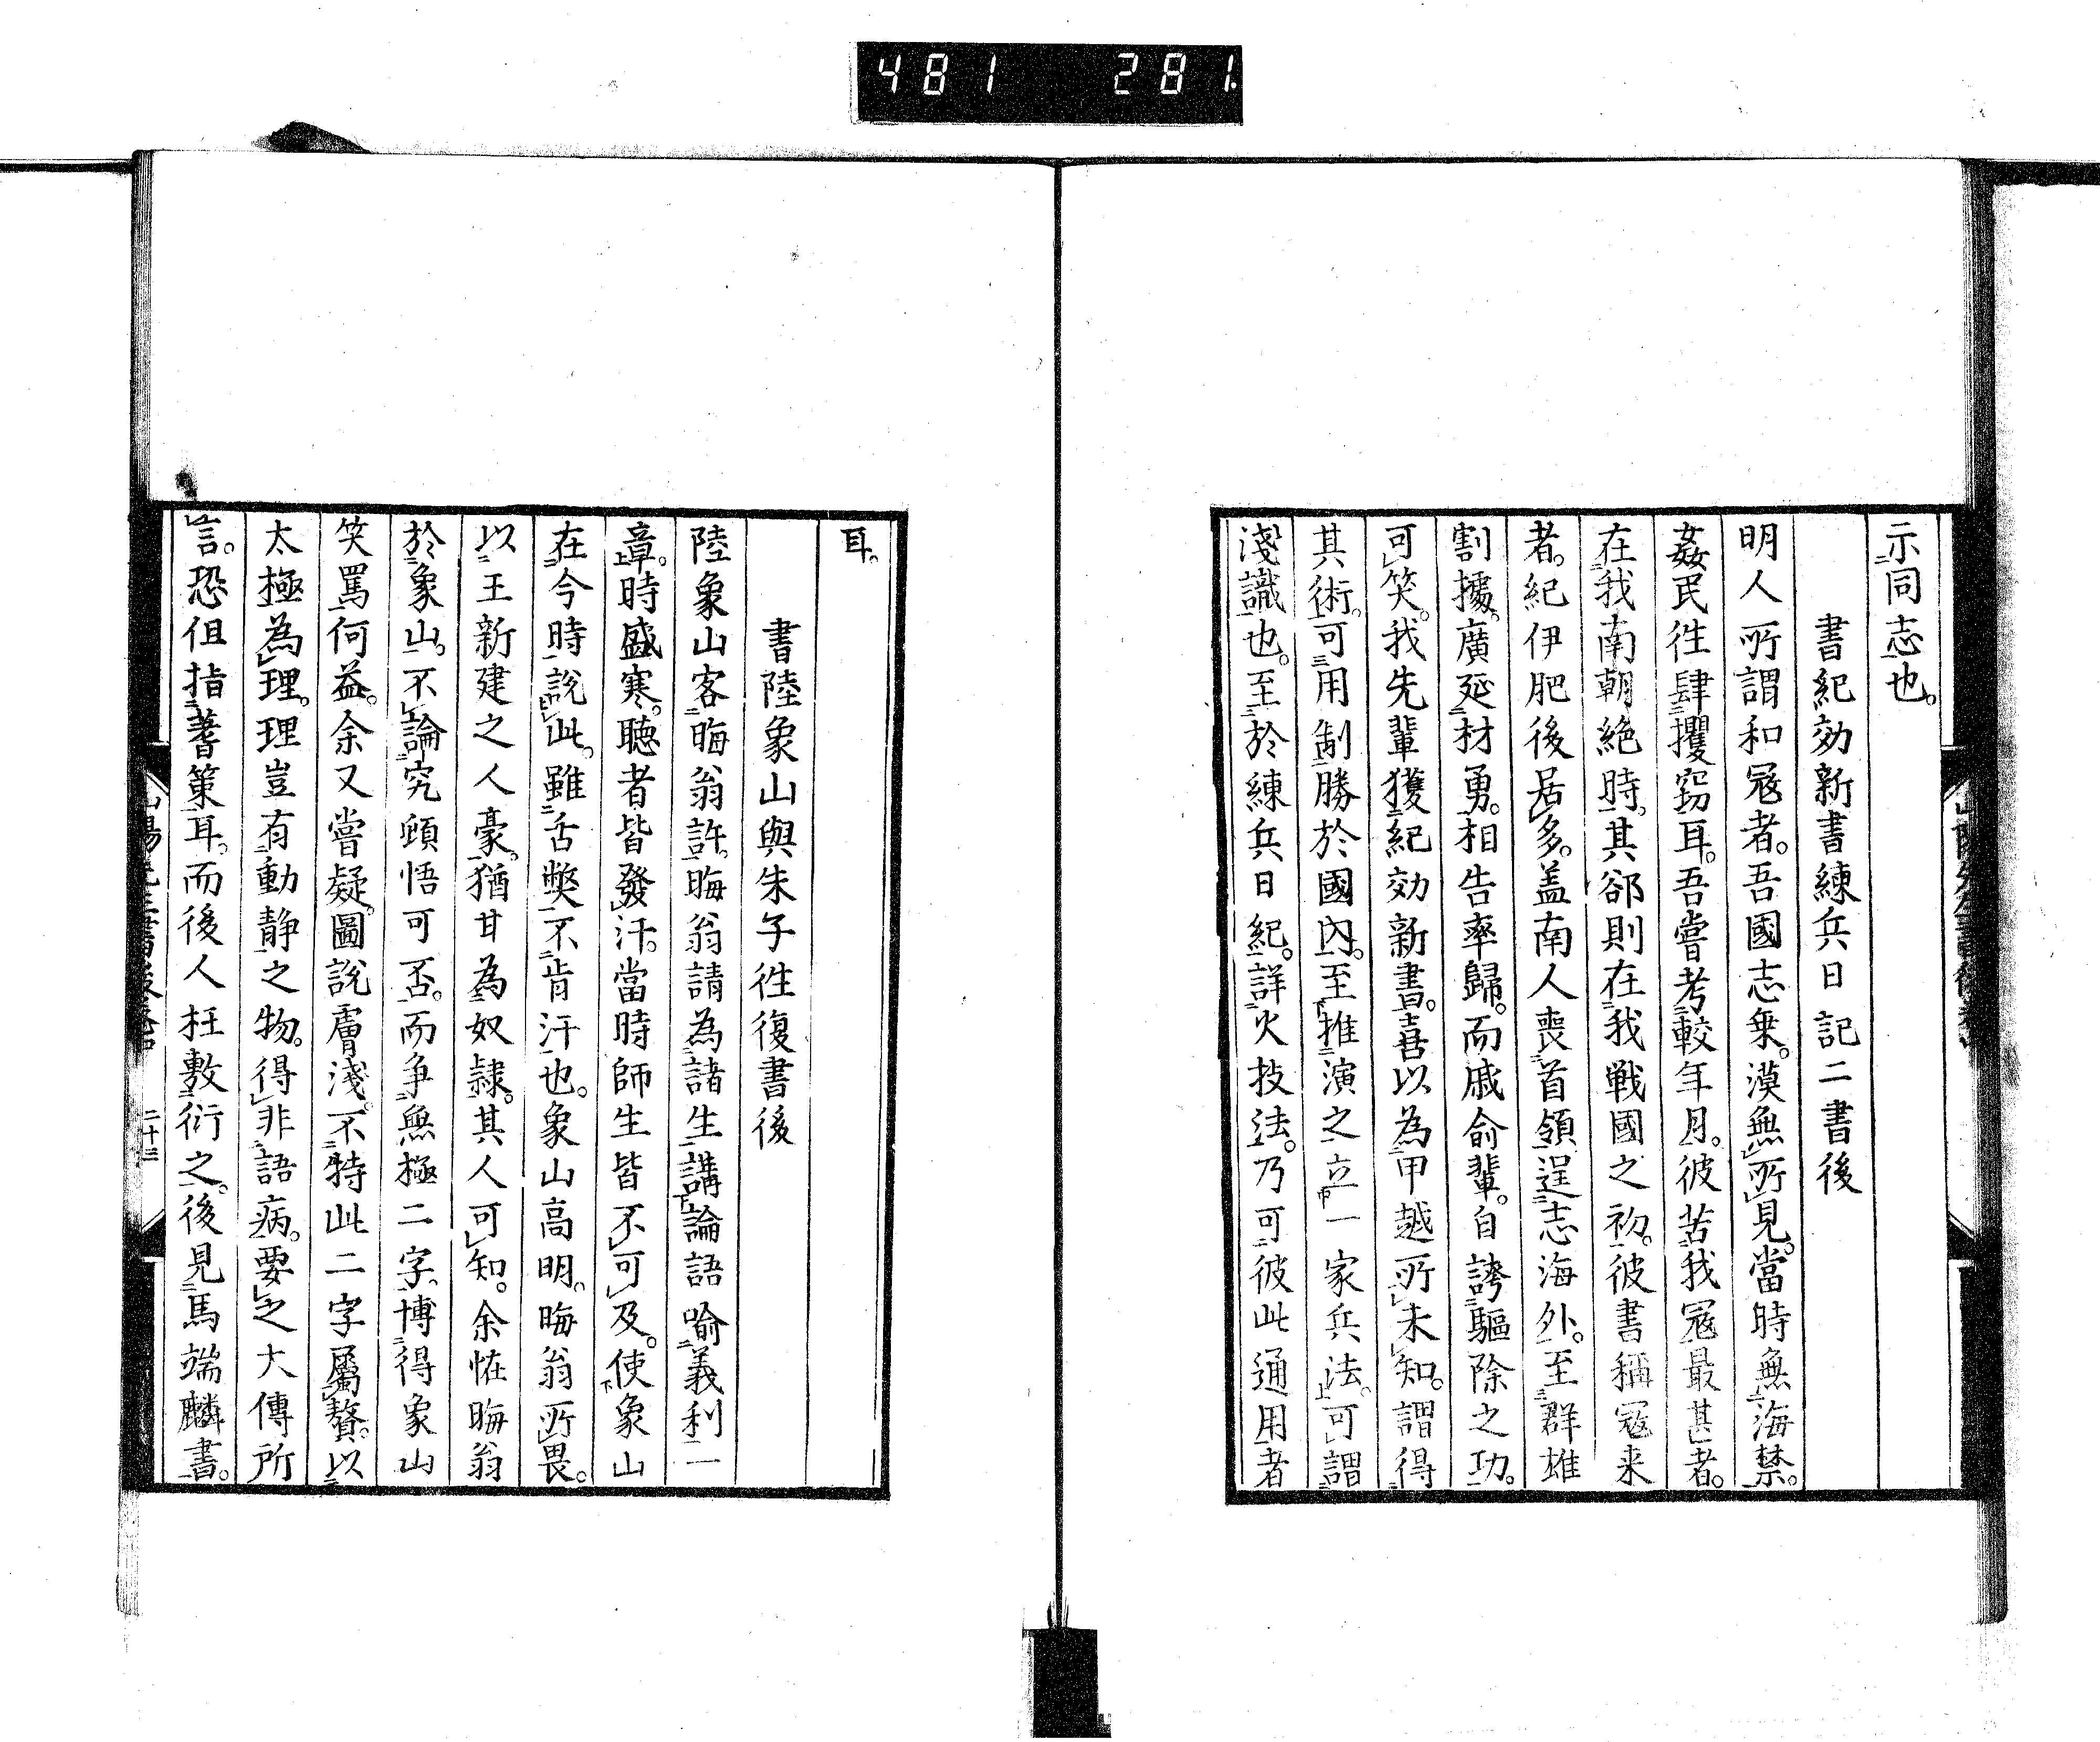 481 281.
示同志也。
書紀効新書練兵日記二書後
明人所謂和寇者。吾國志乗。漠無所見。當時無海禁。
姦民徃肆攫竊耳。吾嘗考較年月。彼苦我冦最甚者。
在我南朝絶時。其郤則在我戦國之初。彼書稱冦来
者。紀伊肥後居多。盖南人喪首領逞志海外。至群雄
割據。廣延材勇。相告率歸。而戚俞輩。自誇驅除之功。
可笑。我先輩獲紀効新書。喜以為甲越所未知。謂得
其術。可用制勝於國內。至推演之立一家兵法。可謂
淺識也。至於練兵日紀。詳火技法。乃可彼此通用者
耳。
書陸象山與朱子徃復書後
陸象山客晦翁許。晦翁請為諸生講論語喻義利一
章。時盛寒。聴者皆發汗。當時師生皆不可及。使象山
在今時說此。雖舌獘不肯汗也。象山高明。晦翁所畏。
以王新建之人豪。猶甘為奴隷。其人可知。余恠晦翁
於象山。不論究頓悟可否。而争無極二字。博得象山
笑罵何益。余又嘗疑圖說膚淺。不特此二字屬贅。以
太極為理。理豈有動静之物。得非語病。要之大傳所
言。恐但指蓍策耳。而後人枉敷衍之。後見馬端麟書。
二十三